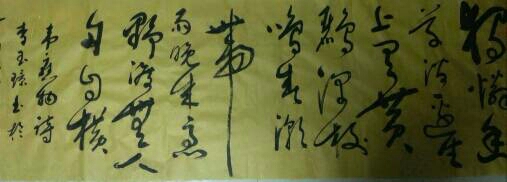 獨憐幽
草澗邊生
上有黄
鸝深樹
鳴春潮
帶
雨晚来急
野渡無人
舟自横
韋應物詩
李玉書於